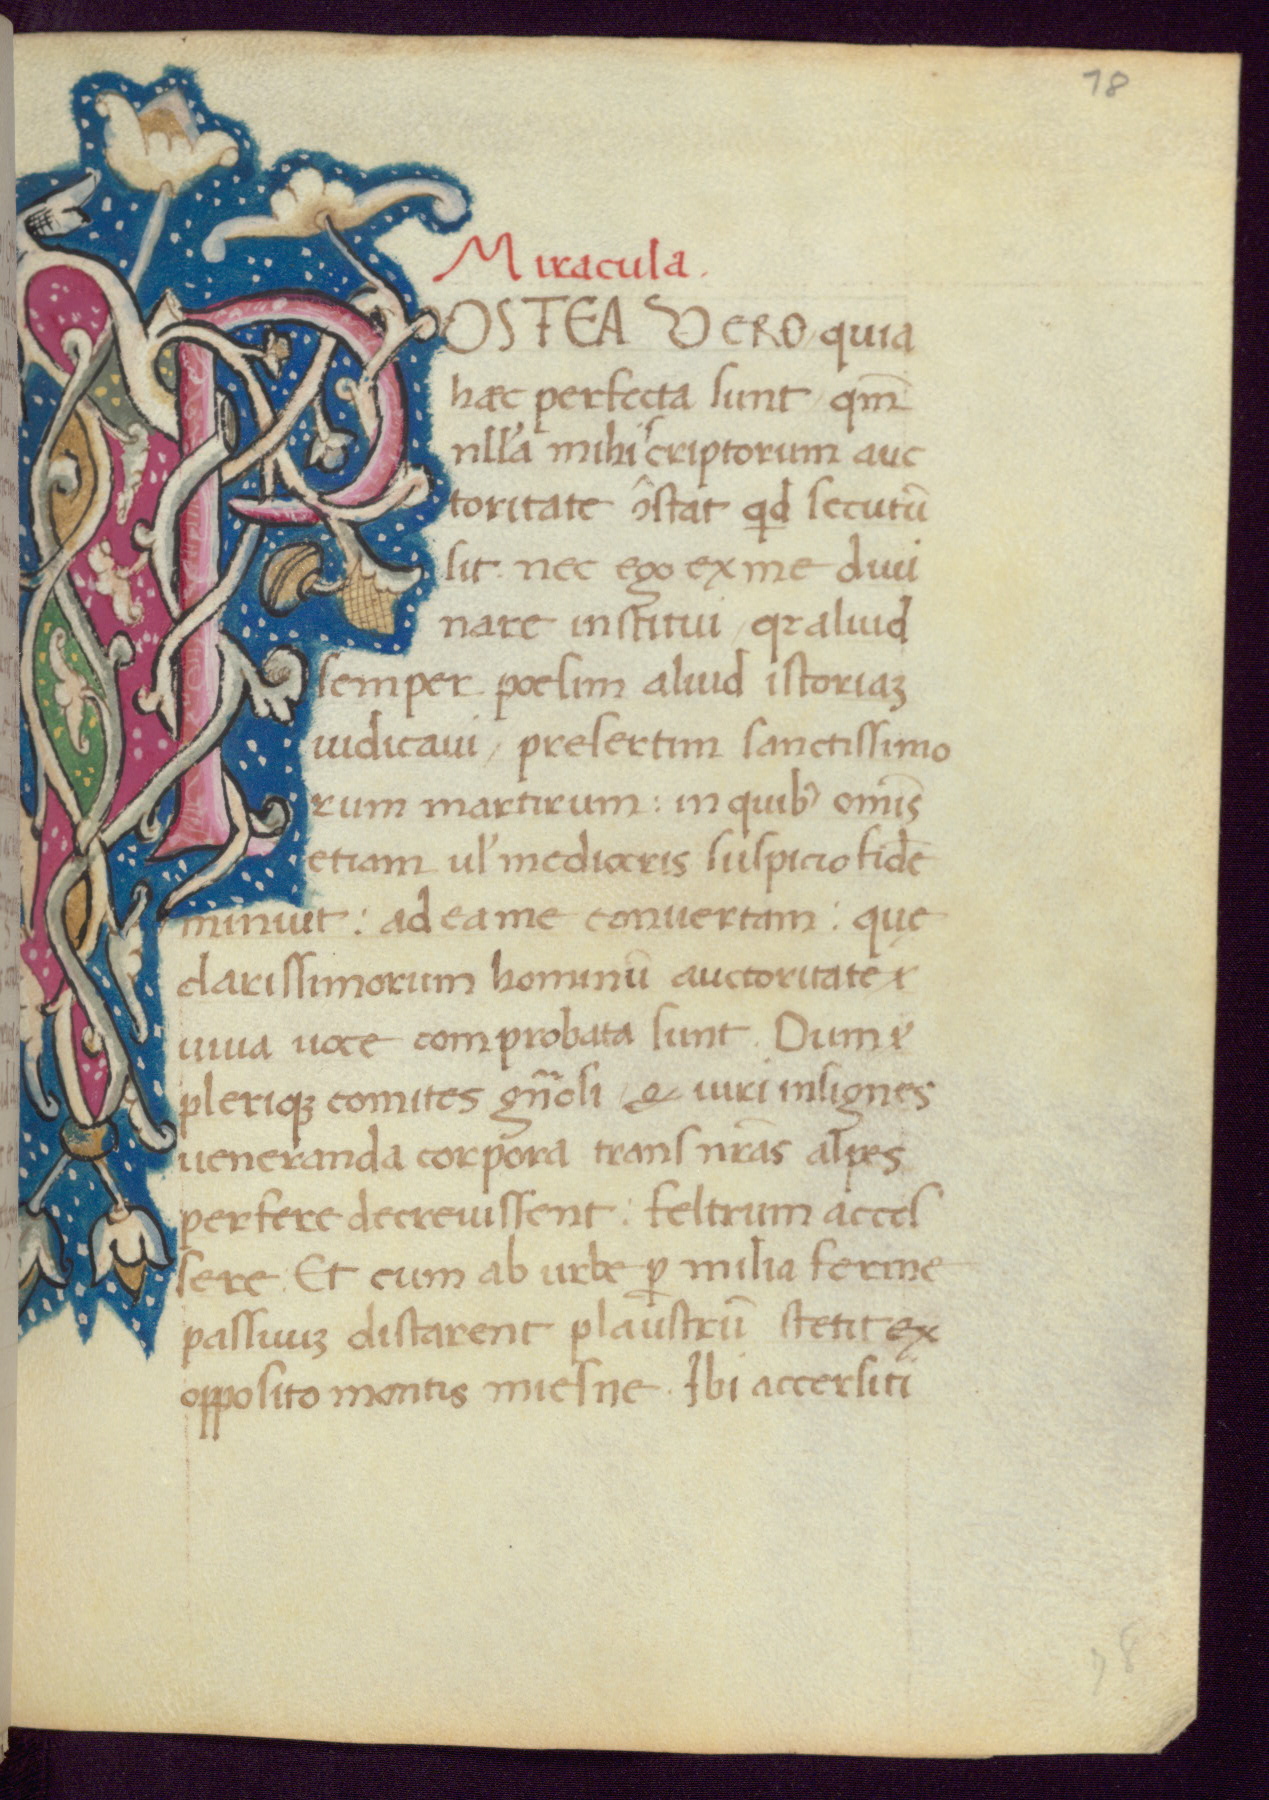 78
Miracula.
POSTEA VERO quia
hæc perfecta sunt qm̄
null'a mihi scriptorum auc
toritate ɔ̄stat qd secutū
sit. nec ego ex me diui
nare institui, qr aliud
semper poesim aliud istoriaꝫ
iudicaui, presertim sanctissimo
rum martirum: in quibꝰ om̄īs
etiam ul' mediocris suspicio fidē
minuit: ad ea me conuertam: quę
clarissimorum hominū auctoritate ⁊
uiua uoce comprobata sunt. Dum ⁊
pleriqꝫ comites gn̄osi, & uiri insignes
ueneranda corpora trans nr̄as alpes
perferre decreuissent: feltrum accel
sere. Et cum ab urbe ꝑ milia ferme
passuuꝫ distarent plaustrū stetit ex
opposito montis miesne. Ibi accersiti
78